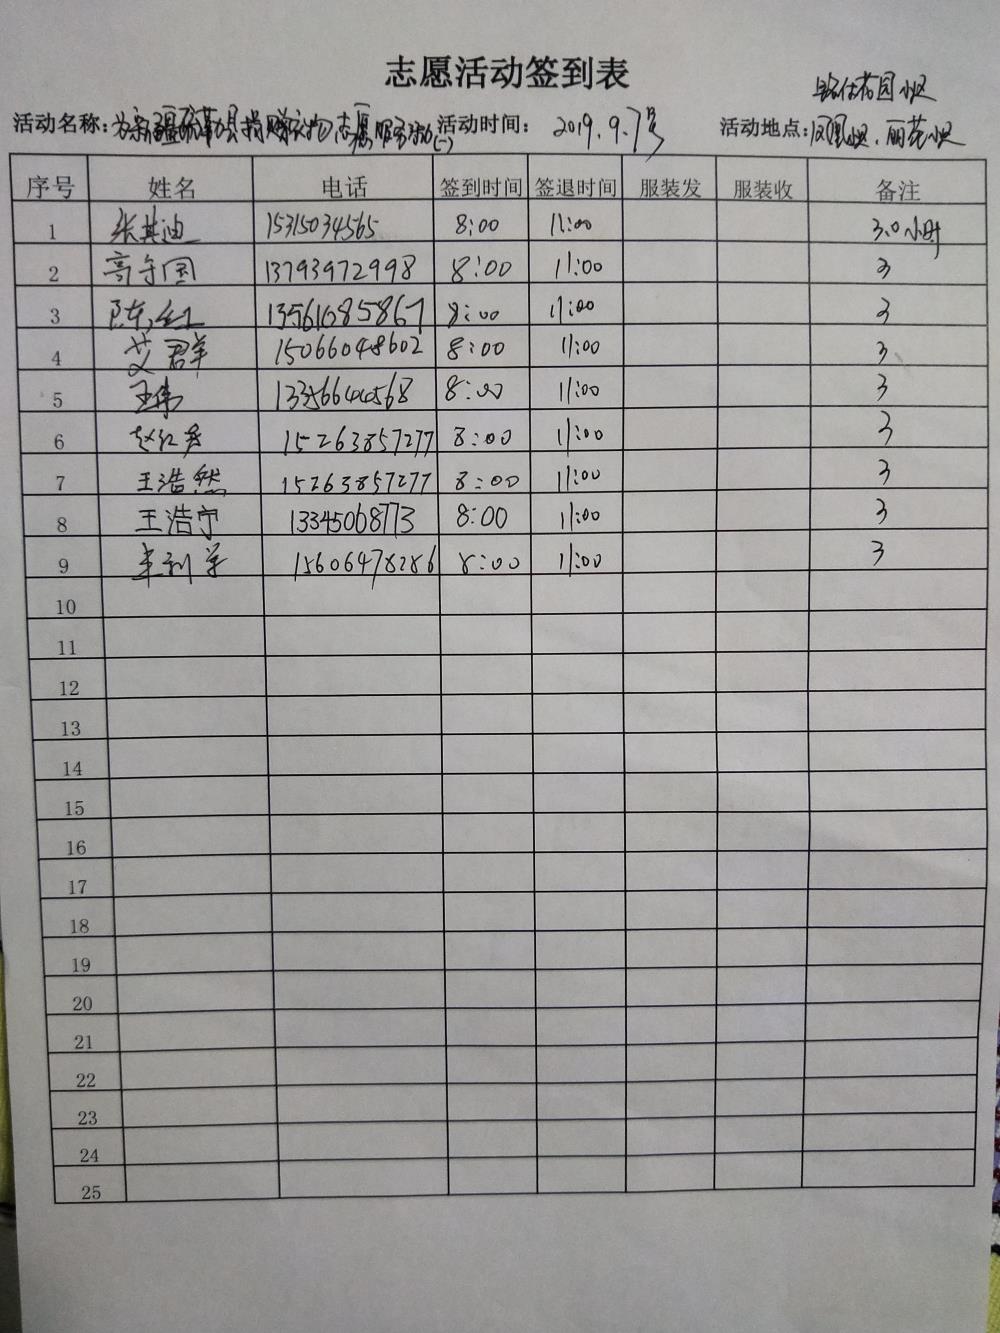 志愿活动签到表
花园小区
活动名称：为新疆疏勒县捐赠衣物志愿服务活动(一) 活动时间：2019.9.7号 活动地点：凤凰小区、丽苑小区
序号 姓名 电话 签到时间 签退时间 服装发 服装收 备注
1 张其迪 15315034565 8:00 11:00 3.0小时
2 高守国 13793972998 8:00 11:00 3
3 陈红 13561085867 8:00 11:00 3
4 艾君群 15066048602 8:00 11:00 3
5 王伟 13356644568 8:00 11:00 3
6 赵红 15263857277 8:00 11:00 3
7 王浩然 15263857277 8:00 11:00 3
8 王浩宁 13345068773 8:00 11:00 3
9 15606478286 8:00 11:00 3
10
11
12
13
14
15
16
17
18
19
20
21
22
23
24
25